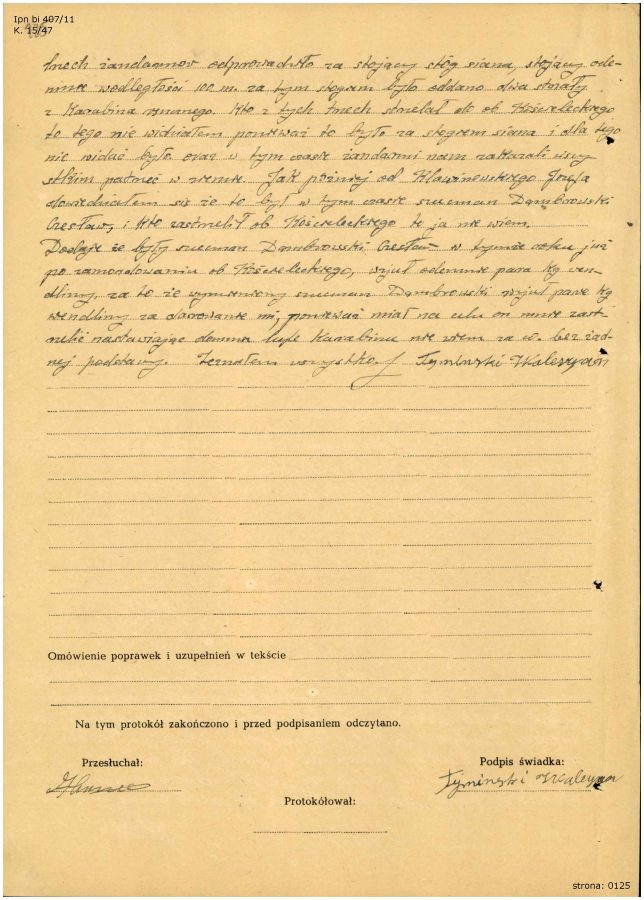 Ipn bi 407/11
K. 15/47
trzech żandarmów odprowadziło za stojący stóg siana, stojący ode-
mnie w odległości 100 m. za tym stogiem było oddano dwa strzały
z karabina ręcznego. Kto z tych trzech strzelał do ob. Kościeleckiego
to tego nie widziałem ponieważ to było za stogiem siana i dla tego
nie widać było oraz w tym czasie żandarmi nam zakazali wszy-
stkim patrzeć w ziemie. Jak później od Józefa
dowiedziałem się że to był w tym czasie szucman Dąmbrowski
Czesław, i kto zastrzelił ob. Kościeleckiego to ja nie wiem.
Dodaje że były szucman Dąmbrowski Czesław w tymże roku już
po zamordowaniu ob. Kościeleckiego, wziął odemnie para kg węn-
dliny, za to że wymieniony szucman Dąmbrowski wziął parę kg
wendliny za darowanie mi, ponieważ miał na celu on mnie zast-
rzelić nastawiając do mnie lufe karabinu nie wiem za co. bez żad-
nej podstawy. Zeznałem wszystko. Tymiński
Omówienie poprawek i uzupełnień w tekście
Na tym protokół zakończono i przed podpisaniem odczytano.
Przesłuchał:
Podpis świadka:
Tymiński
Protokółował:
strona: 0125